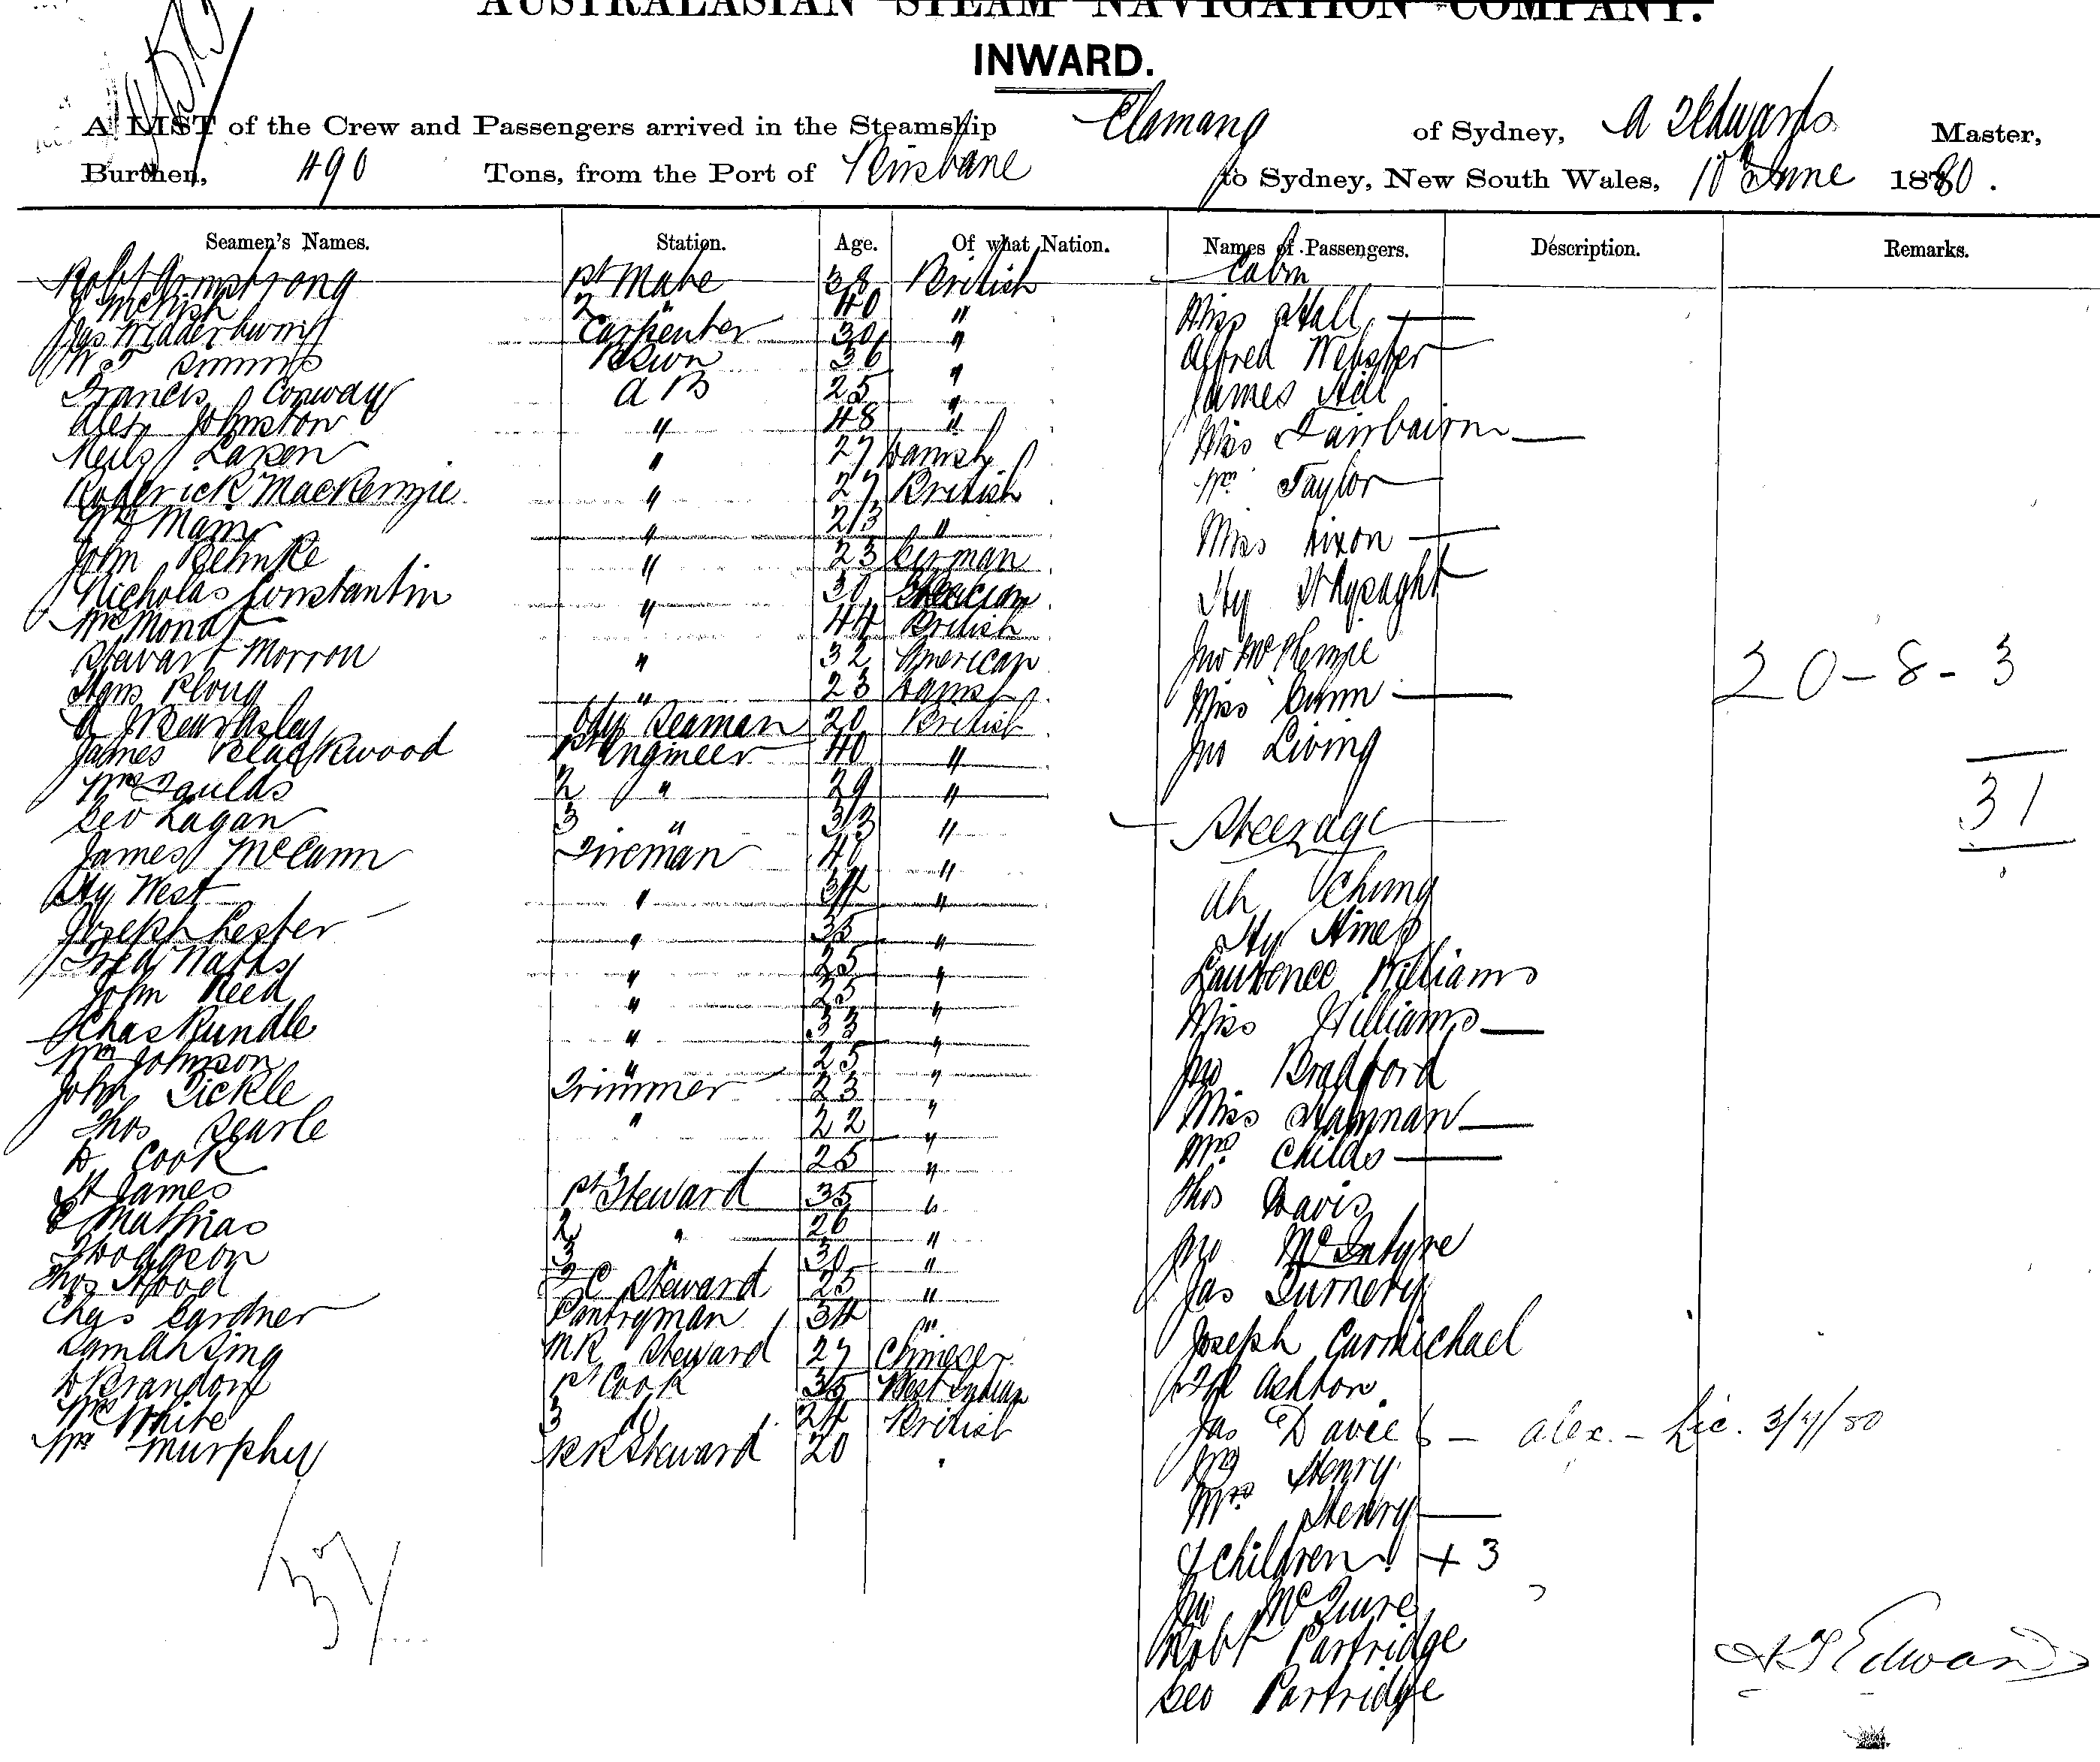 AUSTRALASIAN STEAM NAVIGATION COMPANY.
INWARD.
A LIST of the Crew and Passengers arrived in the Steamship Elamang of Sydney, A Edwards Master,
Burthen, 490 Tons, from the Port of Brisbane to Sydney, New South Wales, 10th June 1880.
Seamen's Names. Station. Age. Of what Nation. Names of Passengers. Description. Remarks.
Robt Armstrong 1st Mate 38 British Cabin
2 " 40 " Miss Hall
Carpenter 30 " Alfred Webster
Bosun 36 " James Hill
Francis Conway A B 25 " Miss Fairbairn
Alex Johnston " 48 " Wm Taylor
Neils Larsen " 27 Danish Miss Dixon
Roderick MacKenzie " 27 British Hy Wysaght
Wm Mann " 23 " Jno McKenzie
John Behnke " 23 German Miss Cunn
Nicholas Constantin " 30 Grecian Jno Living
Wm Monat " 44 British
Stewart Morron " 32 American
Hans Ploug " 23 Danish
A J Beardsley Ordy Seaman 20 British
James Blackwood 1st Engineer 40 "
Wm Faulds 2 " 29 "
Geo Lagan 3 " 33 " Steerage
James McCann Fireman 40 " Ah Chung
Hy West " 34 " Hy Himes
Joseph Lester " 35 " Lawrence Williams
Fred Watts " 25 " Miss Williams
John Reed " 25 " Jno Bradford
Chas Rundle " 33 " Miss Hannan
Wm Johnson " 25 " Mrs Childs
John Tickle Trimmer 23 " Thos Davis
Thos Searle " 22 " Jno McIntyre
D Cook " 25 " Jas Turnery
H James 1st Steward 35 " Joseph Carmichael
E Mathias 2 " 26 " Ashton
Hodgson 3 30 " Jas Davies - alex. - Lic. 3/7/80
Thos Hood F C Steward 25 " Henry
Chas Gardner Pantryman 34 " Mrs Henry
Sam Ah Sing MR Steward 27 Chinese 4 Children + 3
D Brandon 1st Cook 35 West Indian Jno McGuire
Wm White 3 do 24 British Robt Partridge
Wm Murphy RR Steward 20 " Geo Partridge
20 - 8 - 3
31
37
A T Edwards